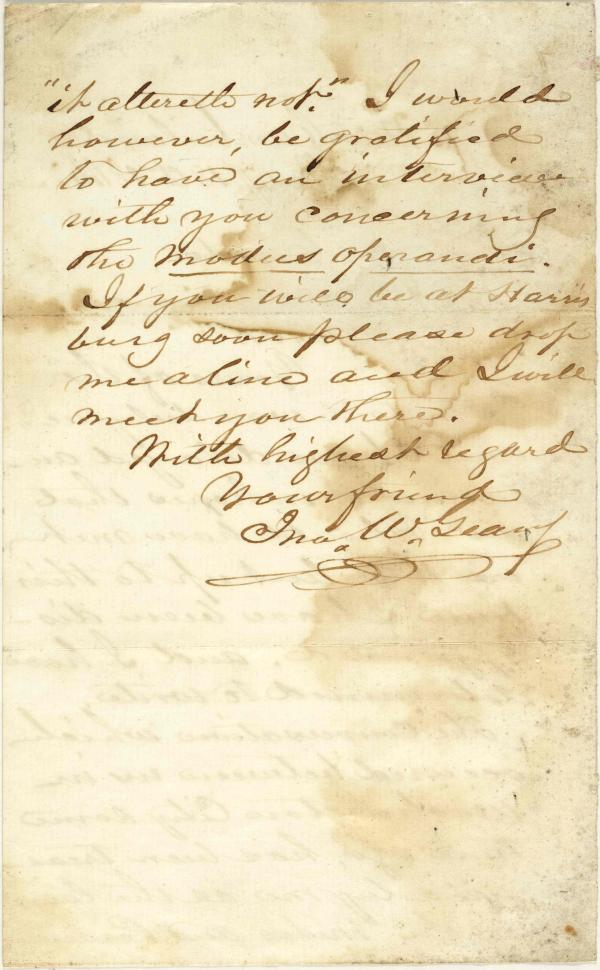 "it altereth not." I would
however, be gratified
to have an interview
with you concerning
the modus operandi.
If you will be at Harris
burg soon please drop
me a line and I will
meet you there.
With highest regard
Your friend
Jno. W. Geary